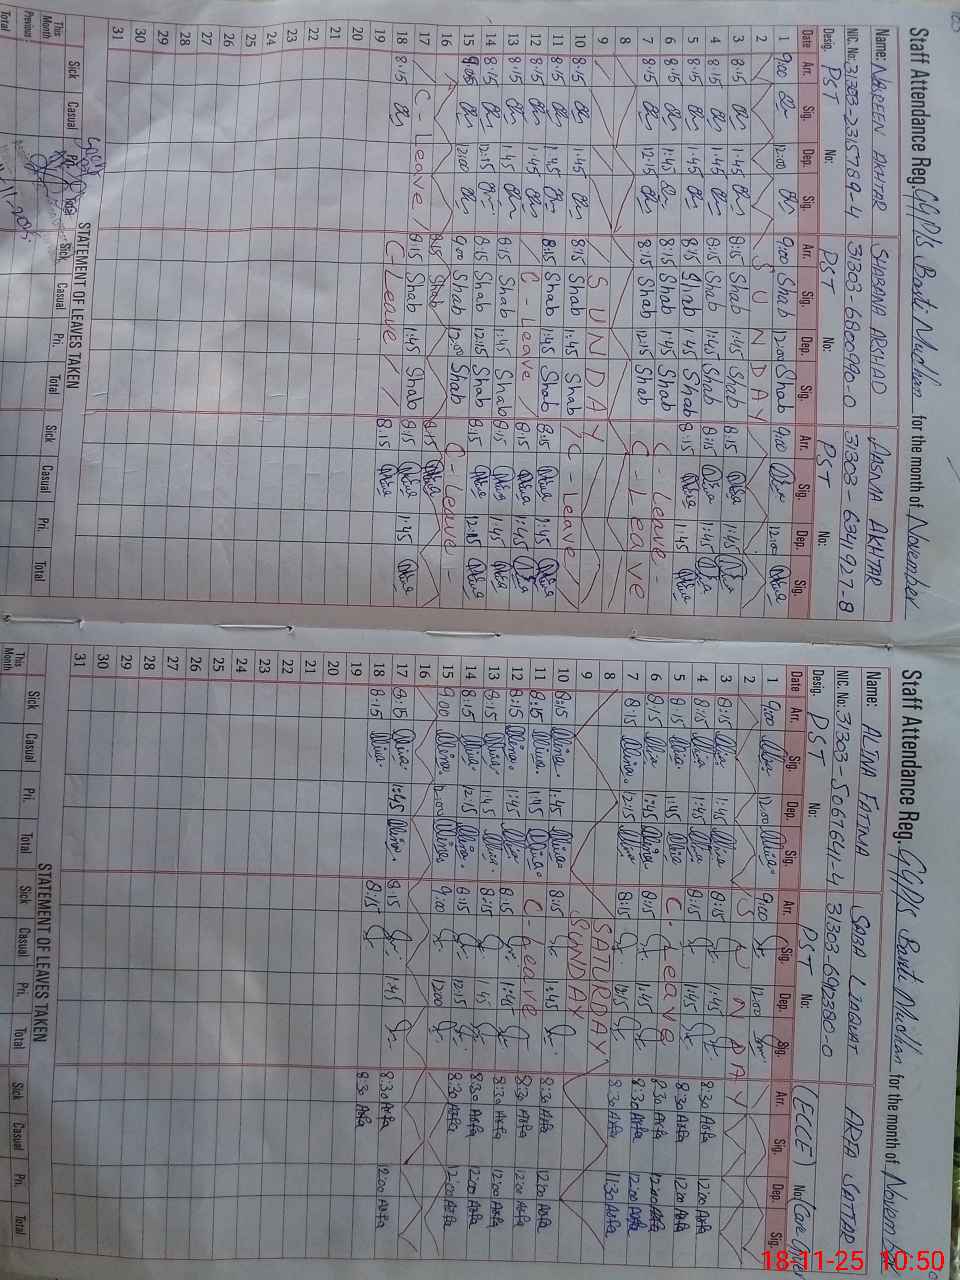 Staff Attendance Reg. GGP/S Basti Mudhan for the month of November
Name: NASREEN AKHTAR SHABANA ARSHAD AASMA AKHTAR
NIC. No: 31303-2315789-4 31303-6800990-0 31303-6341927-8
Desig. PST No: PST No: PST No:
Date Arr. Sig. Dep. Sig. Arr. Sig. Dep. Sig. Arr. Sig. Dep. Sig.
1 9:00 12:00 9:00 Shab 12:00 Shab 9:00 12:00
2 SUNDAY
3 8:15 1:45 8:15 Shab 1:45 Shab 8:15 1:45
4 8:15 1:45 8:15 Shab 1:45 Shab 8:15 1:45
5 8:15 1:45 8:15 Shab 1:45 Shab 8:15 1:45
6 8:15 1:45 8:15 Shab 1:45 Shab C - Leave -
7 8:15 12:15 8:15 Shab 12:15 Shab C - LEAVE
8
9 SUNDAY
10 8:15 1:45 8:15 Shab 1:45 Shab C - Leave
11 8:15 1:45 8:15 Shab 1:45 Shab 8:15 1:45
12 8:15 1:45 C - Leave 8:15 1:45
13 8:15 1:45 8:15 Shab 1:45 Shab 8:15 1:45
14 8:15 12:15 8:15 Shab 12:15 Shab 8:15 12:15
15 9:00 12:00 9:00 Shab 12:00 Shab C - Leave -
16 8:15 Shab 8:15
17 C - Leave 8:15 Shab 1:45 Shab 8:15 1:45
18 8:15 C Leave 8:15
19
20
21
22
23
24
25
26
27
28
29
30
31
STATEMENT OF LEAVES TAKEN
Sick Casual Pri. Total Sick Casual Pri. Total Sick Casual Pri. Total
This Month
Previous
Total
Staff Attendance Reg. GGP/S Basti Mudhan for the month of November
Name: ALINA FATIMA SABA LIAQUAT ARFA SATTAR
NIC. No: 31303-5067641-4 31303-6912380-0 (ECCE)
Desig. PST No: PST No: No: (Care Giver
Date Arr. Sig. Dep. Sig. Arr. Sig. Dep. Sig. Arr. Sig. Dep. Sig.
1 9:00 Alina 12:00 Alina 9:00 12:00
2 SUNDAY
3 8:15 Alina 1:45 Alina 8:15 1:45
4 8:15 Alina 1:45 Alina 8:15 1:45 8:30 Arfa 12:00 Arfa
5 8:15 Alina 1:45 Alina C - Leave 8:30 Arfa 12:00 Arfa
6 8:15 Alina 1:45 Alina 8:15 1:45 8:30 Arfa 12:00 Arfa
7 8:15 Alina 12:15 Alina 8:15 12:15 8:30 Arfa 12:00 Arfa
8 SATURDAY 8:30 Arfa 11:30 Arfa
9 SUNDAY
10 8:15 Alina 1:45 Alina 8:15 1:45
11 8:15 Alina 1:45 Alina C - Leave 8:30 Arfa 12:00 Arfa
12 8:15 Alina 1:45 Alina 8:15 1:45 8:30 Arfa 12:00 Arfa
13 8:15 Alina 1:45 Alina 8:15 1:45 8:30 Arfa 12:00 Arfa
14 8:15 Alina 12:15 Alina 8:15 12:15 8:30 Arfa 12:00 Arfa
15 9:00 Alina 12:00 Alina 9:00 12:00 8:30 Arfa 12:00 Arfa
16
17 8:15 Alina 1:45 Alina 8:15 1:45 8:30 Arfa 12:00 Arfa
18 8:15 Alina 8:15 8:30 Arfa
19
20
21
22
23
24
25
26
27
28
29
30
31
STATEMENT OF LEAVES TAKEN
Sick Casual Pri. Total Sick Casual Pri. Total Sick Casual Pri. Total
This Month
18-11-25 10:50